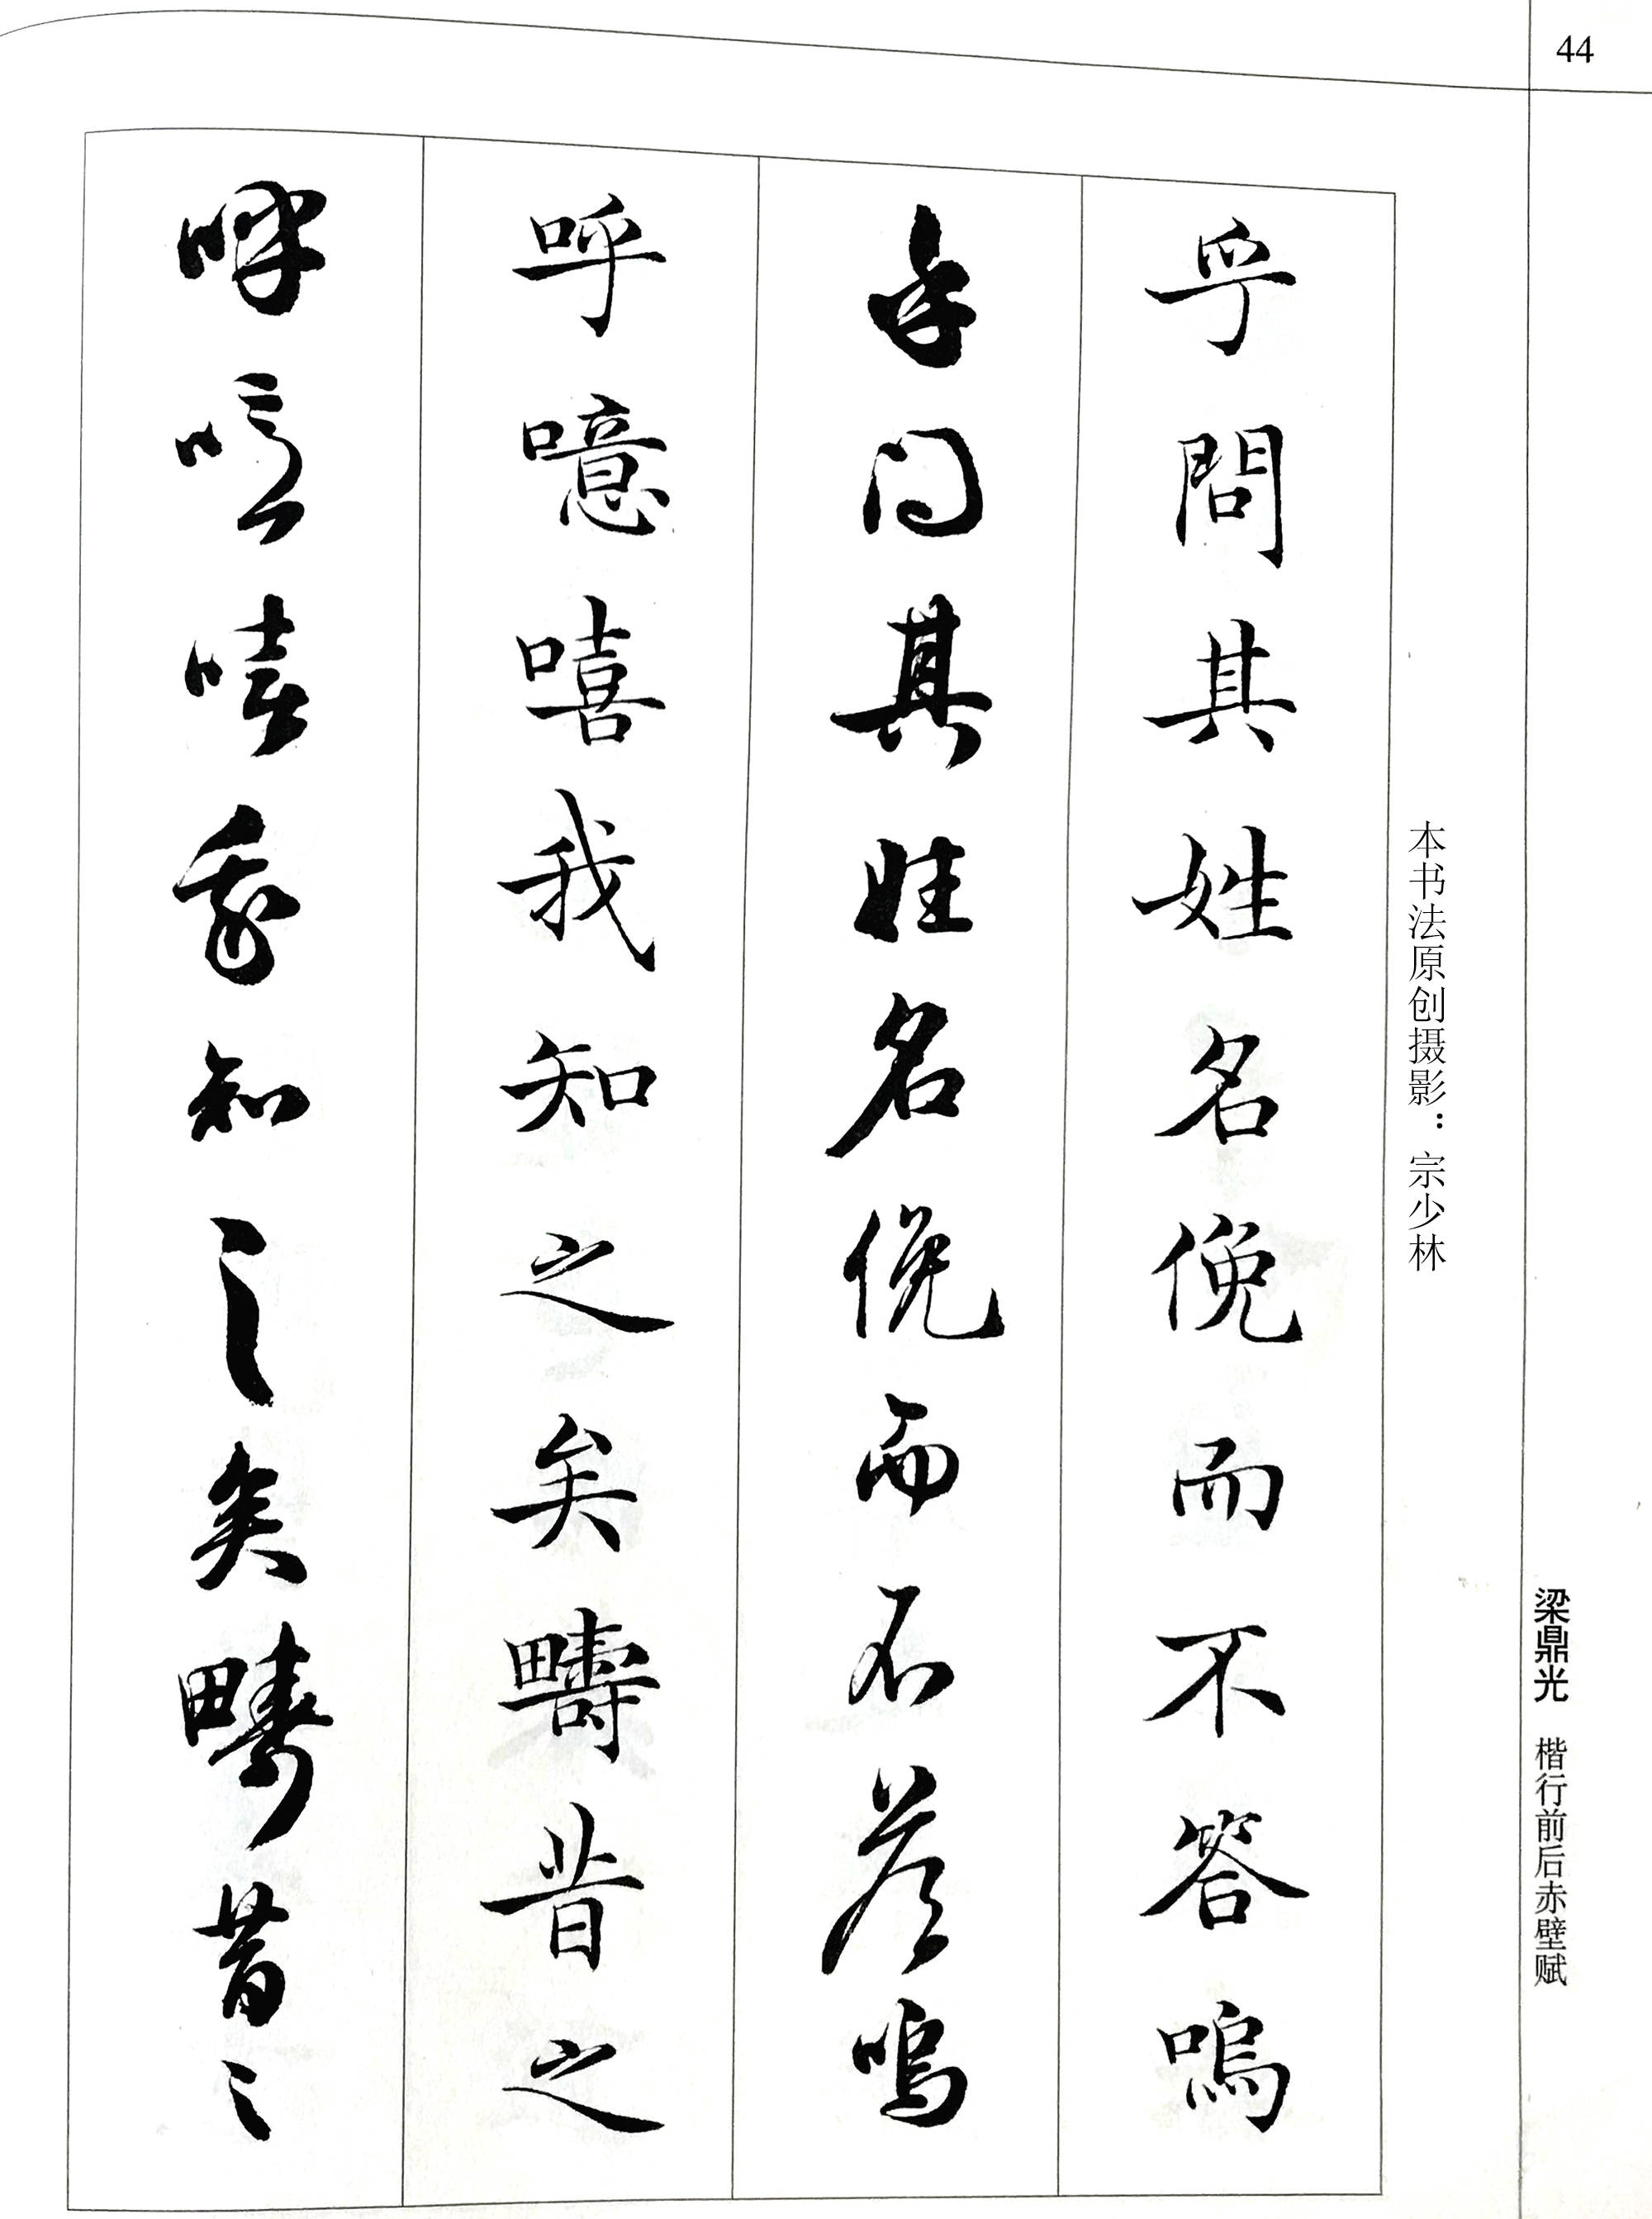 44
梁鼎光 楷行前后赤壁赋
本书法原创摄影：宗少林
乎問其姓名俛而不答嗚
乎問其姓名俛而不答嗚
呼噫嘻我知之矣疇昔之
呼噫嘻我知之矣疇昔之